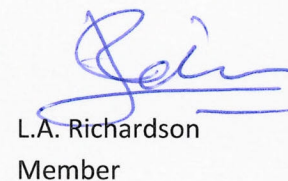 L.A. Richardson
Member